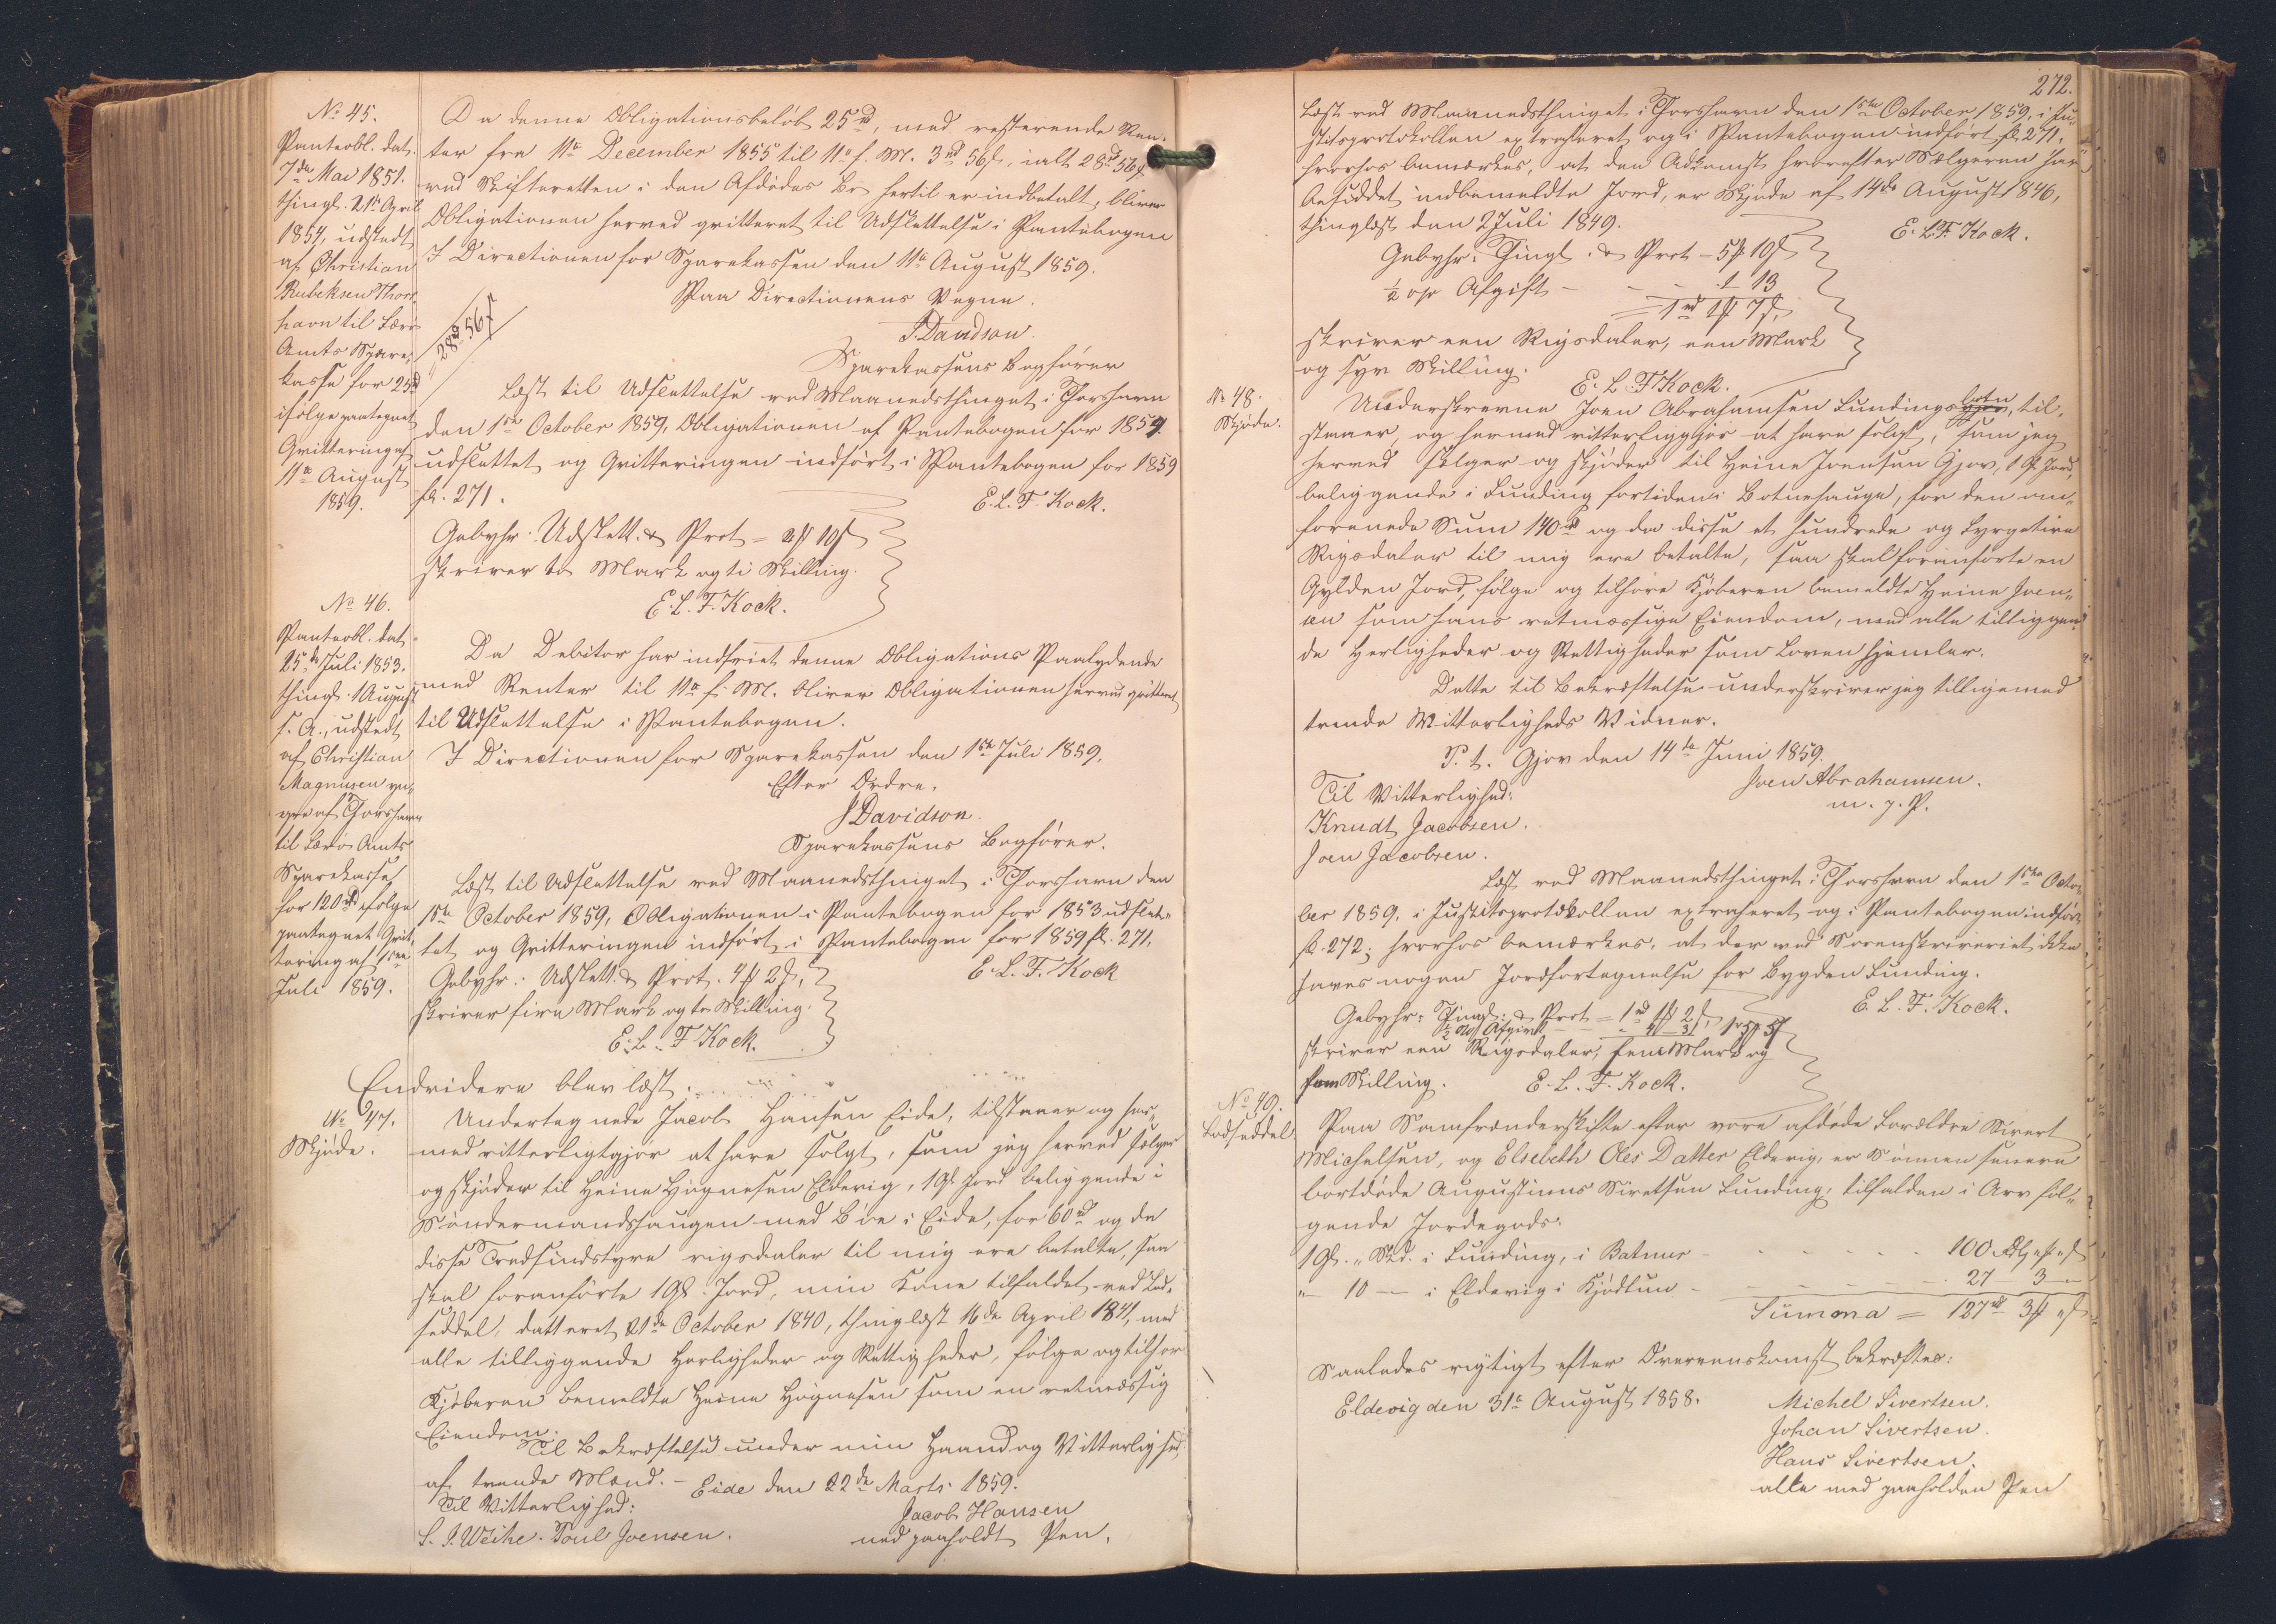 No 45.
Panteobl. dat.
7de Mai 1851.
thingl. 21de April
1854, udstedt
af Christian
Rubeksen Thors-
havn til Færø
Amts Spare-
kasse for 25rd
ifølge paategnet
Qvittering af
11te August
1859.
Da denne Obligationsbeløb 25rd, med resterende Ren-
ter fra 11te December 1855 til 11te f. M. 3rd 56s, ialt 28rd 56s
ved Skifteretten i den Afdødes Bo hertil er indbetalt, bliver
Obligationen herved qvitteret til Udslettelse i Pantebogen
I Directionen for Sparekassen den 11te August 1859.
Paa Directionens Vegne.
28rd 56s
J. Davidson
Sparekassens Bogfører
Læst til Udslettelse ved Maanedsthinget i Thorshavn
den 1ste October 1859, Obligationen af Pantebogen for 1854
udslettet og Qvitteringen indført i Pantebogen for 1859
fol. 271.
E. L. F. Kock.
Gebyhr: Udslett. & Prot = 2 10s
skriver to Mark og ti Skilling.
E. L. F. Kock.
No 46.
Panteobl. dat.
25de Juli 1853.
thingl. 1 August
s. A., udstedt
af Christian
Magnusen yn-
gre af Thorshavn
til Færø Amts
Sparekasse
for 120rd ifølge
paategnet Qvit-
tering af 1ste
Juli 1859.
Da Debitor har indfriet denne Obligations Paalydende
med Renter til 11te f. M. bliver Obligationen herved qvitteret
til Udslettelse i Pantebogen.
I Directionen for Sparekassen den 1ste Juli 1859.
Efter Ordre.
J Davidson.
Sparekassens Bogfører.
Læst til Udslettelse ved Maanedsthinget i Thorshavn den
1ste October 1859, Obligationen i Pantebogen for 1853 udslet-
tet og Qvitteringen indført i Pantebogen for 1859 fol. 271.
Gebyhr: Udslett. & Prot. 4 2s,
E. L. F. Kock
skriver fire Mark og to Skilling.
E. L. F Kock.
Endvidere blev læst.
No 47.
Skjøde.
Undertegnede Jacob Hansen Eide, tilstaaer og her-
med vitterligtgjør at have solgt, som jeg herved sælger
og skjøder til Heine Høgnesen Eldevig, 1 Gl Jord beliggende i
Søndermandshaugen med Bøe i Eide, for 60rd og da
disse Tredsindstyve rigsdaler til mig ere betalte, saa
skal foranførte 1 Gl. Jord, min Kone tilfaldet ved Lod-
seddel, datteret 21de October 1840, thinglæst 16de April 1841, med
alle tilliggende Herligheder og Rettigheder, følge og tilhøre
Kjøberen bemeldte Heine Høgnesen som en retmæssig
Eiendom.
Til Bekræftelse under min Haand og Vitterlighed
af tvende Mænd. – Eide den 22de Marts 1859.
Til Vitterlighed:
Jacob Hansen
S. J. Weihe. Poul Joensen.
med paaholdt Pen.
272.
Læst ved Maanedsthinget i Thorshavn den 1ste October 1859, i Ju-
stitsprotokollen extraheret og i Pantebogen indført fol. 271,
hvorhos bemærkes, at den Adkomst hvorefter Sælgeren har
besiddet indbemeldte Jord, er Skjøde af 14de August 1846,
thinglæst den 2 Juli 1849.
E. L. F. Kock.
Gebyhr: Thingl. & Prot = 5 10s
½ % Afgift - - - 1 13
= 1rd 1 7s,
skriver een Rigsdaler, een Mark
og syv Skilling.
E. L. F Kock.
No 48.
Skjøde.
Underskrevne Joen Abrahamsen Fundingsbotn, til-
staaer, og hermed vitterliggjør at have solgt, som jeg
herved sælger og skjøder til Heine Joensen Gjov, 1 Gl. Jord,
beliggende i Funding fortiden i Botnehauge, for den om-
forenede Sum 140rd og da disse et hundrede og fyrgetive
Rigsdaler til mig ere betalte, saa skal foranførte en
Gylden Jord, følge og tilhøre Kjøberen bemeldte Heine Joen-
sen som hans retmæssige Eiendom, med alle tilliggen-
de Herligheder og Rettigheder som Loven hjemler.
Dette til Bekræftelse underskriver jeg tilligemed
tvende Vitterligheds Vidner.
P. t. Gjov den 14de Juni 1859.
Til Vitterlighed:
Joen Abrahamsen.
m. p. P.
Knudt Jacobsen.
Joen Jacobsen.
Læst ved Maanedsthinget i Thorshavn den 1ste Octo-
ber 1859, i Justitsprotokollen extraheret og i Pantebogen indført
fol. 272; hvorhos bemærkes, at der ved Sorenskriveriet ikke
haves nogen Jordfortegnelse for Bygden Funding.
E. L. F. Kock.
Gebyhr: Thingl. & Prot = 1rd 1 2s,
½ % Afgift - 4 3 1rd 5 5s
skriver een Rigsdaler, fem Mark og
fem Skilling.
E. L. F. Kock.
No 49.
Lodseddel
Paa Samfrænderskifte efter vore afdøde Forældre Sivert
Michelsen, og Elsebeth Oles Datter Eldevig, er Sønnen senere
bortdøde Augustinus Sivertsen Funding, tilfalden i Arv føl-
gende Jordegods:
1 Gl. „ Skd. i Funding, i Batnur - - - - 100 rd „ „ s
„ — 10 — i Eldevig i Kjødtun - - - - 27 — 3 — „
Summa = 127rd 3 „ s
Saaledes rigtigt efter Overeenskomst bekræftes:
Eldevig den 31te August 1858.
Michel Sivertsen.
Johan Sivertsen.
Hans Sivertsen.
alle med paaholden Pen